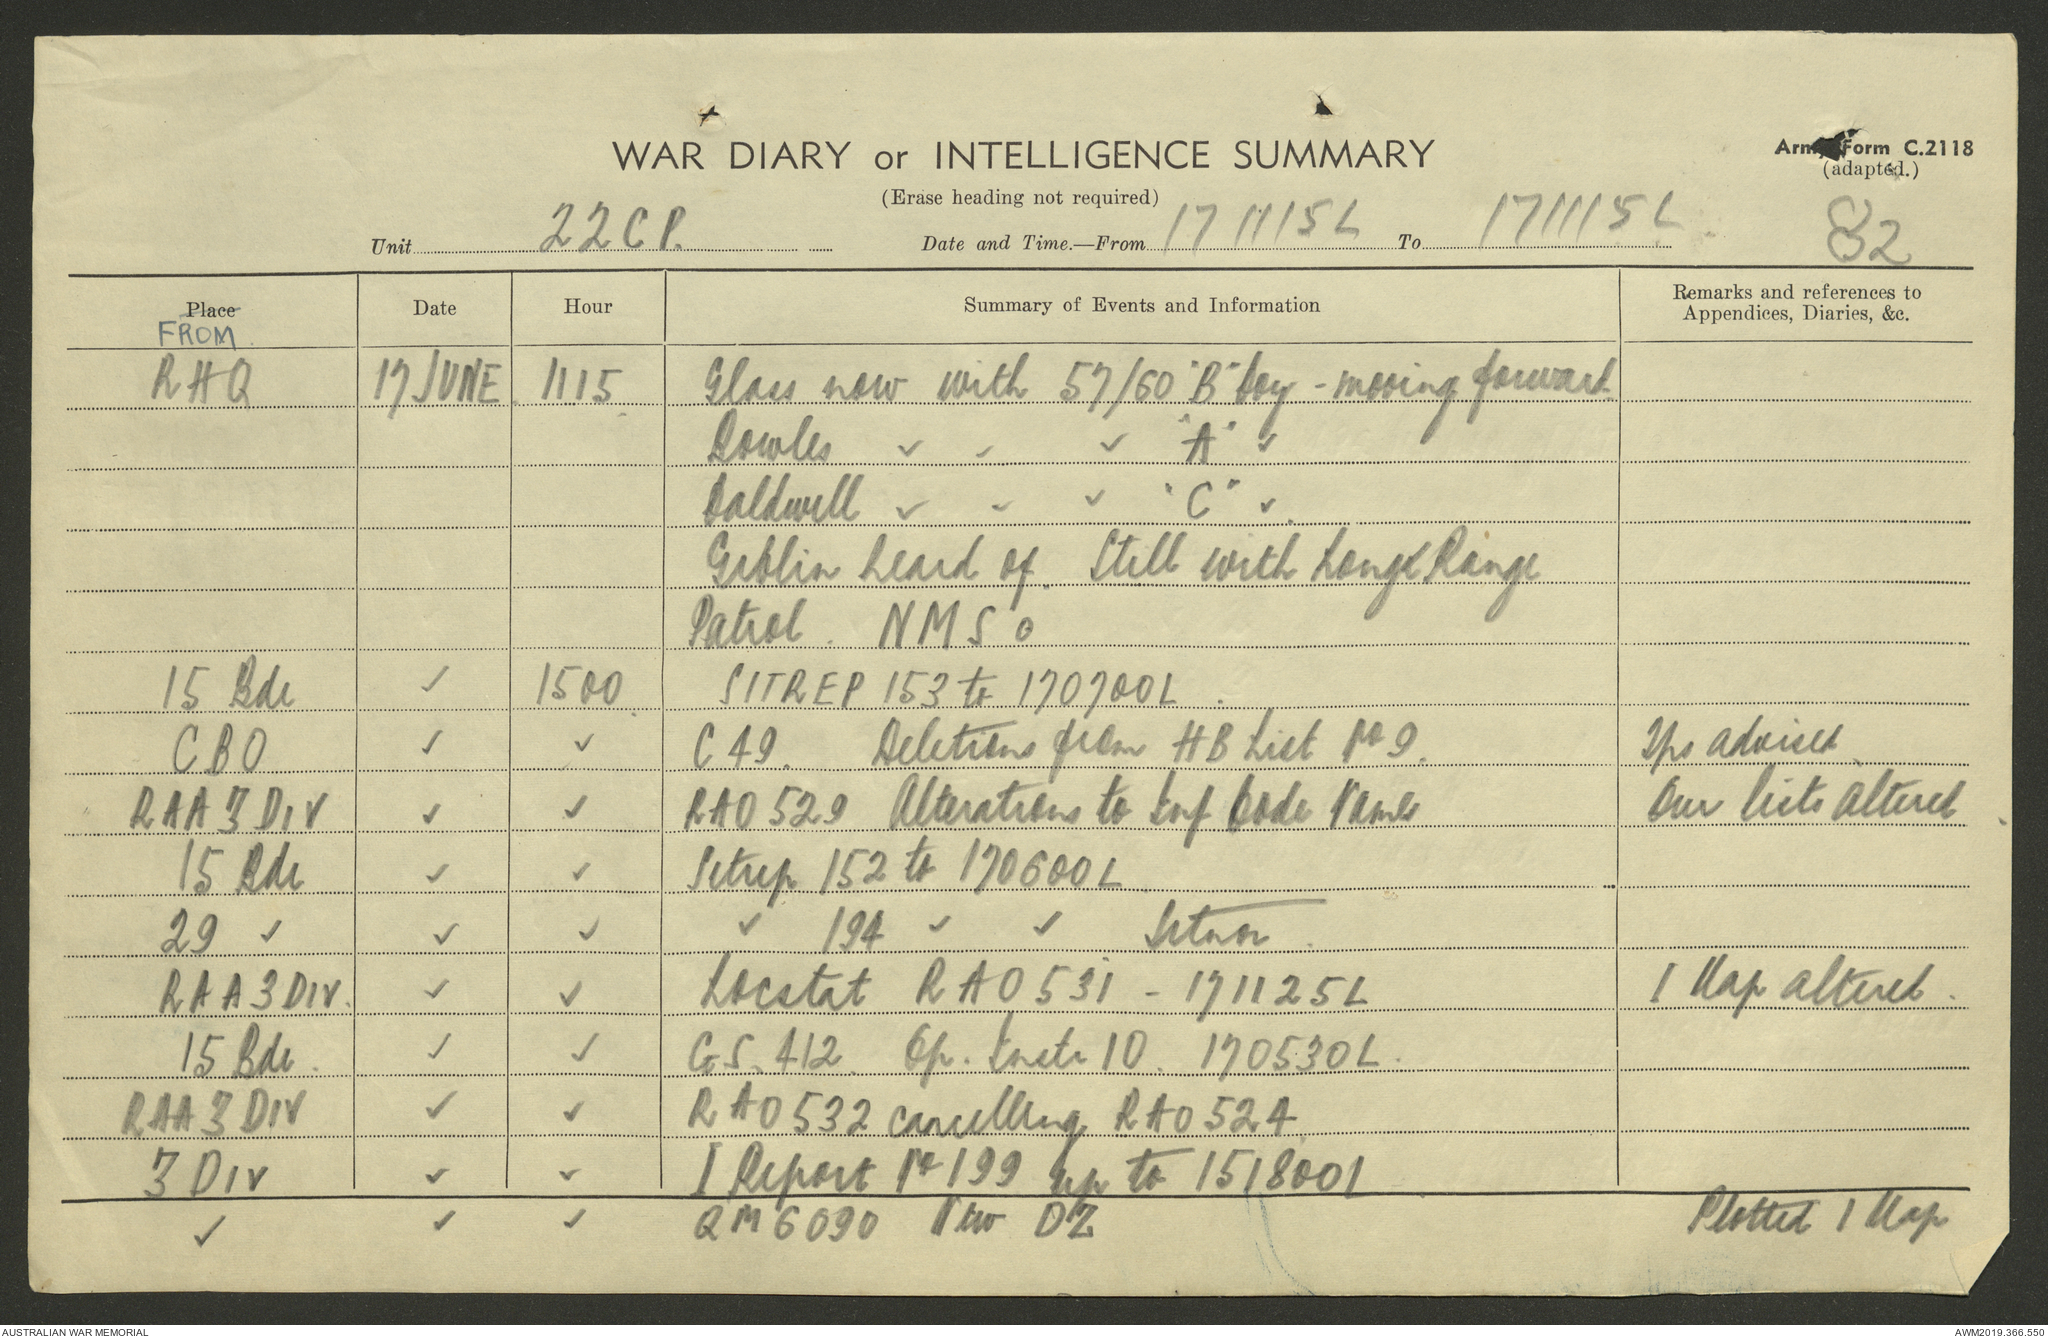 WAR DIARY or INTELLIGENCE SUMMARY
(Erase heading not required)
Army Form C.2118
(adapted.)
82
Unit 22 C P. Date and Time.—From 171115L To 171115L
Place Date Hour Summary of Events and Information Remarks and references to Appendices, Diaries, &c.
FROM
RHQ 17 JUNE 1115 Glass now with 57/60 "B" Coy - moving forward
Bowles ✓ ✓ ✓ "A" ✓
Caldwell ✓ ✓ ✓ "C" ✓
Giblin heard of. Still with Long Range
Patrol. NMSo
15 Bde ✓ 1500 SITREP 153 to 170700L
CBO ✓ ✓ C 49. Deletions from HB List No 9. Ips advised
RAA 3 DIV ✓ ✓ RAO 529 Alterations to Inf Code Names Our lists altered
15 Bde ✓ ✓ Sitrep 152 to 170600L
29 ✓ ✓ ✓ ✓ 194 ✓ ✓
RAA 3 DIV. ✓ ✓ Locstat RAO 531 - 171125L I Map altered.
15 Bde. ✓ ✓ GS. 412. Op. Instr 10. 170530L.
RAA 3 DIV ✓ ✓ RAO 532 cancelling RAO 524
3 DIV ✓ ✓ I Report No 199 up to 151800L
✓ ✓ ✓ QM 6090 New DZ Plotted I Map
AUSTRALIAN WAR MEMORIAL
AWM2019.366.550